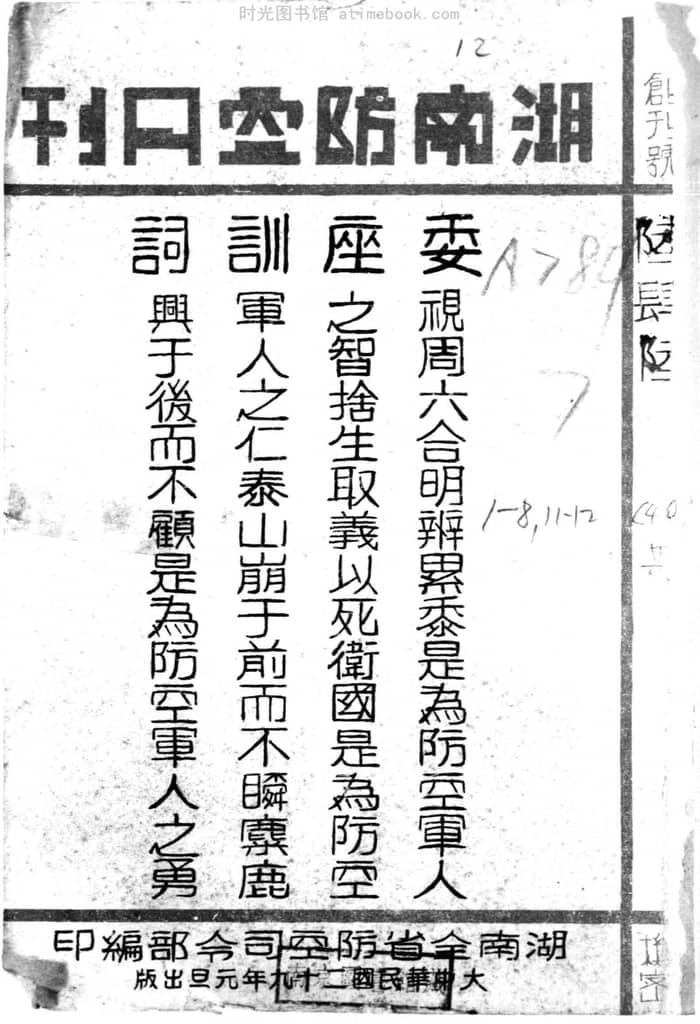 时光图书馆 atimebook.com
12
湖南防空月刊
創刊號
陸肆陸
委座訓詞
視周六合明辨累黍是為防空軍人
之智捨生取義以死衛國是為防空
軍人之仁泰山崩于前而不瞬麋鹿
興于後而不顧是為防空軍人之勇
A789
7
1-8,11-12
湖南全省防空司令部編印
大中華民國二十九年元旦出版